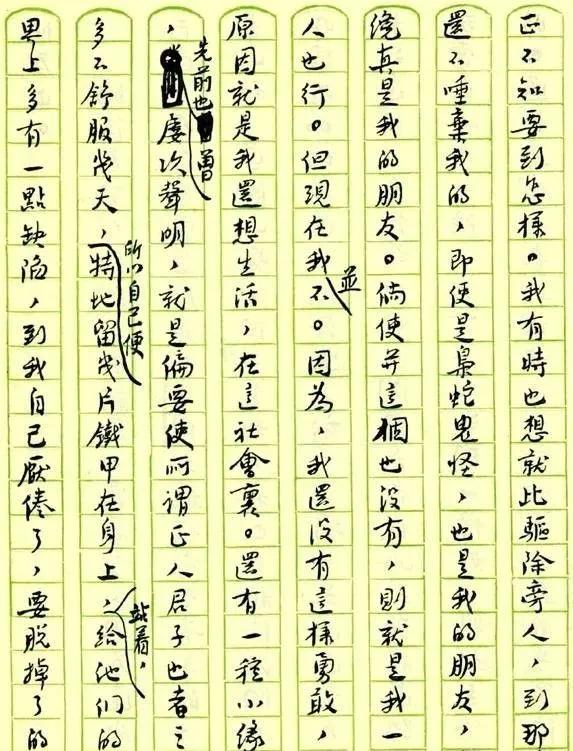 正不知要到怎樣。我有時也想就此驅除旁人，到那
還不唾棄我的，即使是梟蛇鬼怪，也是我的朋友，
纔真是我的朋友。倘使并這個也沒有，則就是我一
人也行。但現在我並不。因為，我還沒有這樣勇敢，
原因就是我還想生活，在這社會裏。還有一種小緣
，先前也曾屢次聲明，就是偏要使所謂正人君子也者之
多不舒服幾天，所以自己便特地留幾片鐵甲在身上，站着，給他們的
界上多有一點缺陷，到我自己厭倦了，要脫掉了的